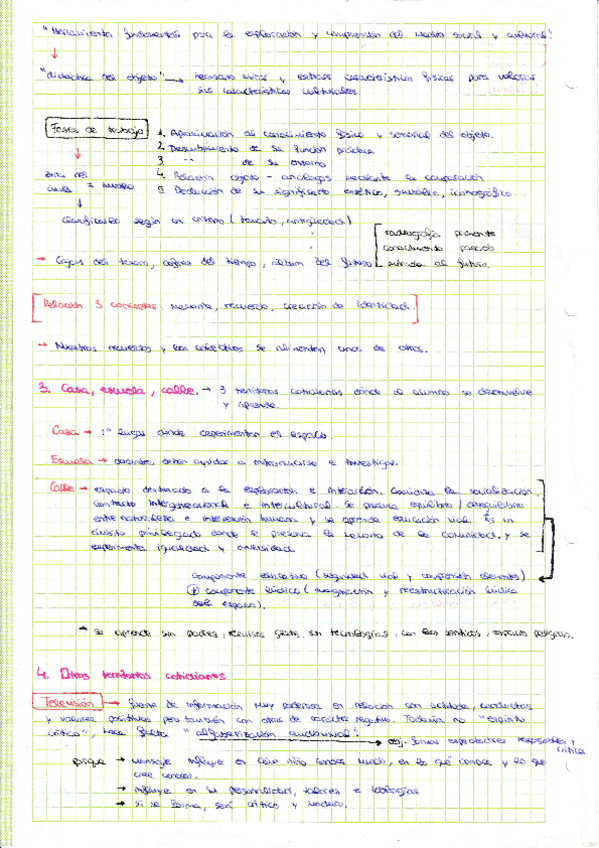 "Herramienta fundamental para la exploración y comprensión del medio social y cultural"
↓
"didáctica del objeto" → necesario mirar y extraer características físicas para valorar
sus características culturales.
Fases de trabajo
1. Aproximación al conocimiento físico y sensorial del objeto.
2. Descubrimiento de su función práctica
3. " de su entorno
4. Relación objeto - análogos mediante la comparación
5. Deducción de su significado estético, simbólico, iconográfico...
↓
aula = museo
↓
clasificación según un criterio (tamaño, antigüedad)
radiografía presente
conocimiento pasado
mirada al futuro.
→ Cajas del tesoro, cofres del tiempo, álbum del futuro
Relación 3 conceptos: memoria, recuerdo, creación de identidad.
→ Nuestros recuerdos y los colectivos se alimentan unos de otros.
3. Casa, escuela, calle. → 3 territorios cotidianos donde el alumno se desenvuelve
y aprende.
Casa → 1er lugar donde experimentan el espacio
Escuela → docentes, deben ayudar a introducirse e investigar.
Calle → espacio destinado a la exploración e interacción. la socialización,
contacto intergeneracional e intercultural. Se produce equilibrio / desequilibrio
entre naturaleza e intervención humana y se aprende educación vial. Es un
ámbito privilegiado donde se preserva la memoria de la comunidad, y se
experimenta igualdad y diversidad.
componente educativo (seguridad vial y comprensión elementos)
⊕ componente lúdico (imaginación y reestructuración lúdica
del espacio).
→ se aprende sin padres, recursos gratis, sin tecnologías, con los sentidos, espacio peligroso.
4. Otros territorios cotidianos
Televisión → fuente de información muy poderosa en relación con actitudes, conductas
y valores positivos pero también con otros de carácter negativo. Todavía no "espíritu
crítico", hace falta "alfabetización audiovisual".
→ obj: formar espectadores responsables y
críticos
porque → mensaje influye en cómo niño conoce mundo, en lo qué conoce y lo que
cree conocer.
→ influye en su personalidad, valores e ideologías
→ si se forma, será crítico y maduro.